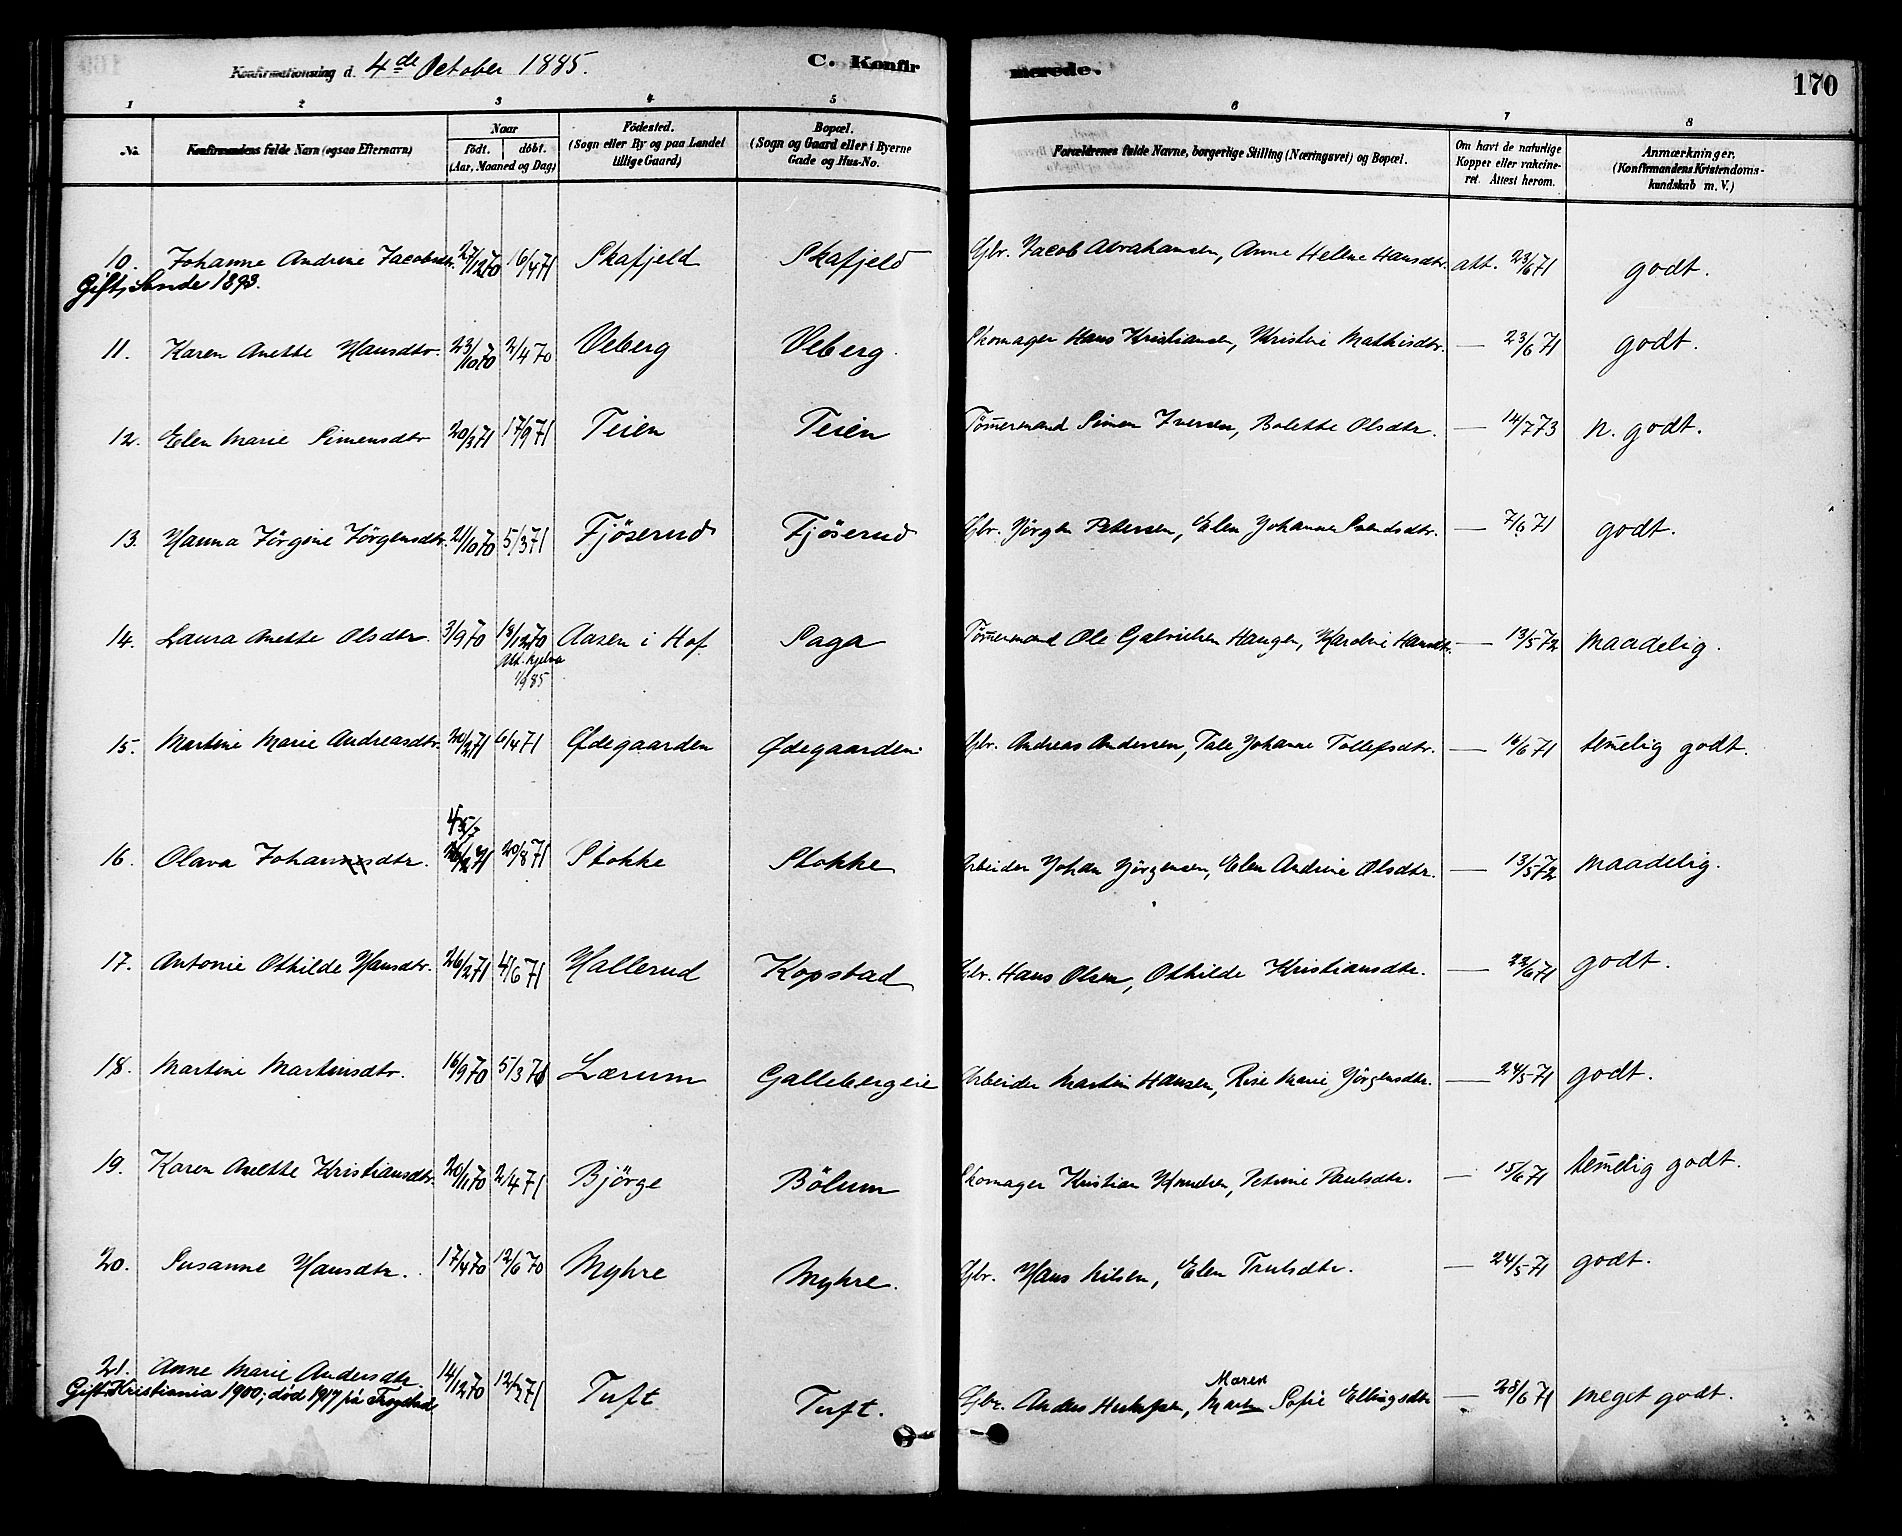 Konfirmationsdag d. 4de October 1885.
C. Konfirmerede.
170
1 2 3 4 5 6 7 8
No. Konfirmandens fulde Navn (ogsaa Efternavn) Naar födt. döbt. (Aar, Maaned og Dag) Födested. (Sogn eller By og paa Landet tillige Gaard) Bopæl. (Sogn og Gaard eller i Byerne Gade og Hus-No. Forældrenes fulde Navne, borgerlige Stilling (Næringsvei) og Bopæl. Om havt de naturlige Kopper eller vakcineret. Attest herom. Anmærkninger. (Konfirmandens Kristendomskundskab m. V.)
10. Johanne Andrine Jacobsdtr. 27/12 70 16/4 71 Skafjeld Skafjeld Gbr. Jacob Abrahamsen, Anne Hellene Hansdtr. att. 23/6 71 godt.
Gift i Sande 1893.
11. Karen Anette Hansdtr. 23/10 70 2/4 70 Veberg Veberg. Skomager Hans Kristiansen, Kristine Mathisdtr. — 23/6 71 godt.
12. Elen Marie Simensdtr 20/3 71 17/9 71 Teien Teien Tömermand Simen Iversen, Bolette Olsdtr. — 14/7 73 n. godt.
13. Hanna Jörgine Jörgensdtr. 21/10 70 5/3 71 Fjöserud Fjöserud Gbr. Jörgen Petersen, Elen Johanne Svendsdtr. — 7/6 71 godt.
14. Laura Anette Olsdtr. 3/9 70 13/12 70 Aasen i Hof Saga Tömermand Ole Gabrielsen Haugen, Karoline Hansdtr. — 13/5 72 maadelig.
1/9 85
15. Martine Marie Andreasdtr. 20/2 71 6/4 71 Ødegaarden Ødegaarden. Gbr. Andreas Andersen, Tale Johanne Tollefsdtr. — 16/6 71 temelig godt.
16. Olava Johannesdtr. 26/2 71 20/8 71 Stokke Stokke Arbeider Johan Jörgensen, Elen Andrine Olsdtr. — 13/5 72 maadelig.
17. Antonie Othilde Hansdtr. 26/2 71 4/6 71 Hallerud Kopstad Gbr. Hans Olsen, Othilde Kristiansdtr. — 22/6 71 godt.
18. Martine Martinsdtr. 16/9 70 5/3 71 Lærum Gallebergeie Arbeider Martin Hansen, Rise Marie Jörgensdtr. — 24/5 71 godt.
19. Karen Anette Kristiansdtr. 20/11 70 2/4 71 Björge Bölum Skomager Kristian Knudsen, Petrine Paulsdtr. — 15/6 71 temelig godt.
20. Susanne Hansdtr. 17/4 70 12/6 70 Myhre Myhre. Gbr. Hans Nilsen, Elen Trulsdtr. — 24/5 71 godt.
21. Anne Marie Andersdtr. 14/12 70 12/3 71 Tuft Tuft. Gbr. Anders Maren Sofie Ellingsdtr — 28/6 71 meget godt.
Gift i Kristiania 1900; död 1917 på